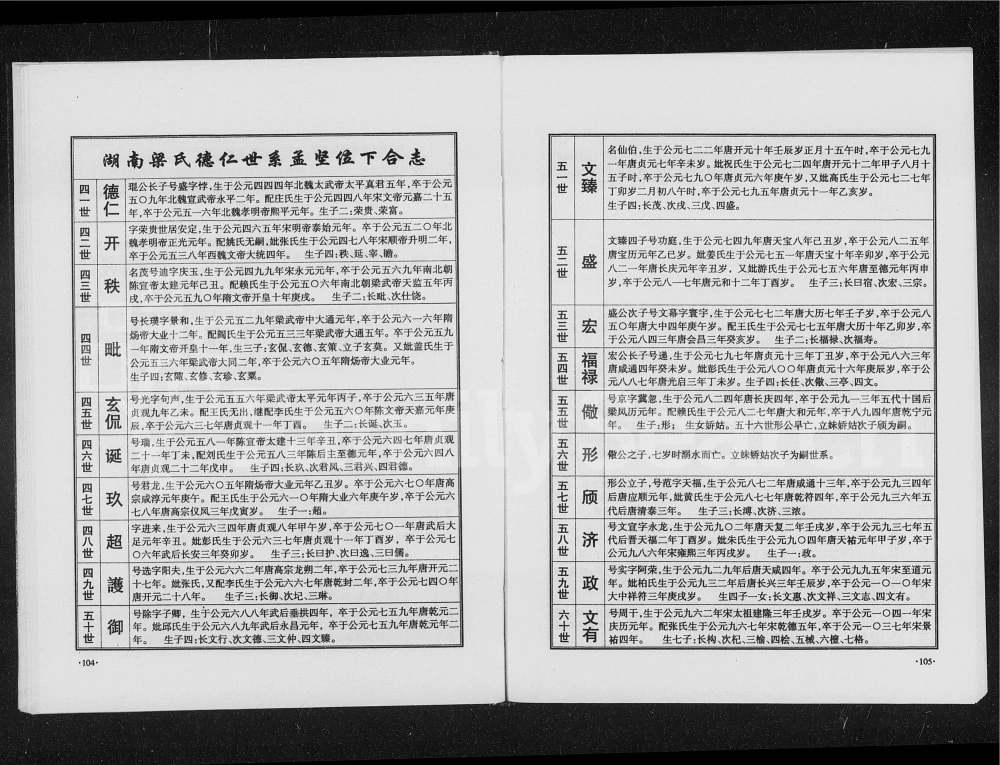 湖南梁氏德仁世系孟坚位下合志
四一世
德仁
琨公长子号盛字悖，生于公元四四四年北魏太武帝太平真君五年，卒于公元
五〇九年北魏宣武帝永平二年。配庄氏生于公元四四八年宋文帝元嘉二十五
年，卒于公元五一六年北魏孝明帝熙平元年。 生子二：荣贵、荣富。
四二世
开
字荣贵世居安定，生于公元四六五年宋明帝泰始元年。卒于公元五二〇年北
魏孝明帝正光元年。配姚氏无嗣，妣张氏生于公元四七八年宋顺帝升明二年，
卒于公元五三八年西魏文帝大统四年。 生子四：秩、延、宰、瞻。
四三世
秩
名茂号迪字庆玉，生于公元四九九年宋永元元年，卒于公元五六九年南北朝
陈宣帝太建元年己丑。配赖氏生于公元五〇六年南北朝梁武帝天监五年丙
戌，卒于公元五九〇年隋文帝开皇十年庚戌。 生子二：长毗、次仕饶。
四四世
毗
号长璞字景和，生于公元五二九年梁武帝中大通元年，卒于公元六一六年隋
炀帝大业十二年。配阎氏生于公元五三三年梁武帝大通五年。卒于公元五九
一年隋文帝开皇十一年，生三子：玄侃、玄德、玄策、立子玄莫。又妣盖氏生于
公元五三六年梁武帝大同二年，卒于公元六〇五年隋炀帝大业元年。
生子四：玄隲、玄修、玄珍、玄粟。
四五世
玄侃
号光字句声，生于公元五五六年梁武帝太平元年丙子，卒于公元六三五年唐
贞观九年乙未。配王氏无出、继配李氏生于公元五六〇年陈文帝天嘉元年庚
辰，卒于公元六三七年唐贞观十一年丁酉。 生子二：长诞、次玉。
四六世
诞
号瑞，生于公元五八一年陈宣帝太建十三年辛丑，卒于公元六四七年唐贞观
二十一年丁未，配刘氏生于公元五八三年陈后主至德元年，卒于公元六四八
年唐贞观二十二年戊申。 生子四：长玖、次君风、三君兴、四君德。
四七世
玖
号君龙，生于公元六〇五年隋炀帝大业元年乙丑岁。卒于公元六七〇年唐高
宗咸淳元年庚午。配王氏生于公元六一〇年隋大业六年庚午岁，卒于公元六
七八年唐高宗仪凤三年戊寅岁。 生子一：超。
四八世
超
字进来，生于公元六三四年唐贞观八年甲午岁，卒于公元七〇一年唐武后大
足元年辛丑。妣彭氏生于公元六三七年唐贞观十一年丁酉岁，卒于公元七
〇六年武后长安三年癸卯岁。 生子三：长曰护、次曰逸、三曰儒。
四九世
護
号选字阳夫，生于公元六六二年唐高宗龙朔二年，卒于公元七三九年唐开元二
十七年。妣张氏，又配李氏生于公元六六七年唐乾封二年，卒于公元七四〇年
唐开元二十八年。 生子三：长御、次圮、三琳。
五十世
御
号除字子卿，生于公元六八八年武后垂拱四年，卒于公元七五九年唐乾元二
年。妣邱氏生于公元六八九年武后永昌元年，卒于公元七五九年唐乾元年二
年。 生子四：长文行、次文德、三文仲、四文臻。
·104·
五一世
文臻
名仙伯，生于公元七二二年唐开元十年壬辰岁正月十五午时，卒于公元七九
一年唐贞元七年辛未岁。妣祝氏生于公元七二四年唐开元十二年甲子八月十
五子时，卒于公元七九〇年唐贞元六年庚午岁，又妣高氏生于公元七二七年
丁卯岁二月初八午时，卒于公元七九五年唐贞元十一年乙亥岁。
生子四：长茂、次戌、三戊、四盛。
五二世
盛
文臻四子号功庭，生于公元七四九年唐天宝八年己丑岁，卒于公元八二五年
唐宝历元年乙巳岁。妣姜氏生于公元七五一年唐天宝十年辛卯岁，卒于公元
八二一年唐长庆元年辛丑岁，又妣游氏生于公元七五六年唐至德元年丙申
岁，卒于公元八一七年唐元和十二年丁酉岁。 生子三：长曰宿、次宏、三宗。
五三世
宏
盛公次子号文幕字寰宇，生于公元七七二年唐大历七年壬子岁，卒于公元八
五〇年唐大中四年庚午岁。配王氏生于公元七七五年唐大历十年乙卯岁，卒
于公元八四三年唐会昌三年癸亥岁。 生子二：长福禄、次福寿。
五四世
福禄
宏公长子号通，生于公元七九七年唐贞元十三年丁丑岁，卒于公元八六三年
唐咸通四年癸未岁。妣彭氏生于公元八〇〇年唐贞元十六年庚辰岁，卒于公
元八八七年唐光启三年丁未岁。生子四：长任、次儆、三亭、四文。
五五世
儆
号京字冀忽，生于公元八二四年唐长庆四年，卒于公元九一三年五代十国后
梁凤历元年。配赖氏生于公元八二七年唐大和元年，卒于八九四年唐乾宁元
年。 生子：形； 生女娇姑。五十六世形公早亡，立妹娇姑次子颀为嗣。
五六世
形
儆公之子，七岁时溺水而亡。立妹娇姑次子为嗣世系。
五七世
颀
形公立子，号范字天福，生于公元八七二年唐咸通十三年，卒于公元九三四年
后唐应顺元年，妣黄氏生于公元八七七年唐乾符四年，卒于公元九三六年五
代后唐清泰三年。 生子三：长溥、次济、三浓。
五八世
济
号文宣字永龙，生于公元九〇二年唐天复二年壬戌岁，卒于公元九三七年五
代后晋天福二年丁酉岁。妣朱氏生于公元九〇四年唐天祐元年甲子岁，卒于
公元九八六年宋雍熙三年丙戌岁。 生子一：政。
五九世
政
号实字阿荣，生于公元九二九年后唐天咸四年。卒于公元九九五年宋至道元
年。妣柏氏生于公元九三二年后唐长兴三年壬辰岁，卒于公元一〇一〇年宋
大中祥符三年庚戌岁。 生四子一女：长文惠、次文祥、三文志、四文有。
六十世
文有
号周于，生于公元九六二年宋太祖建隆三年壬戌岁。卒于公元一〇四一年宋
庆历元年。配张氏生于公元九六七年宋乾德五年，卒于公元一〇三七年宋景
祐四年。 生七子：长构、次杞、三榆、四桧、五楲、六檀、七格。
·105·